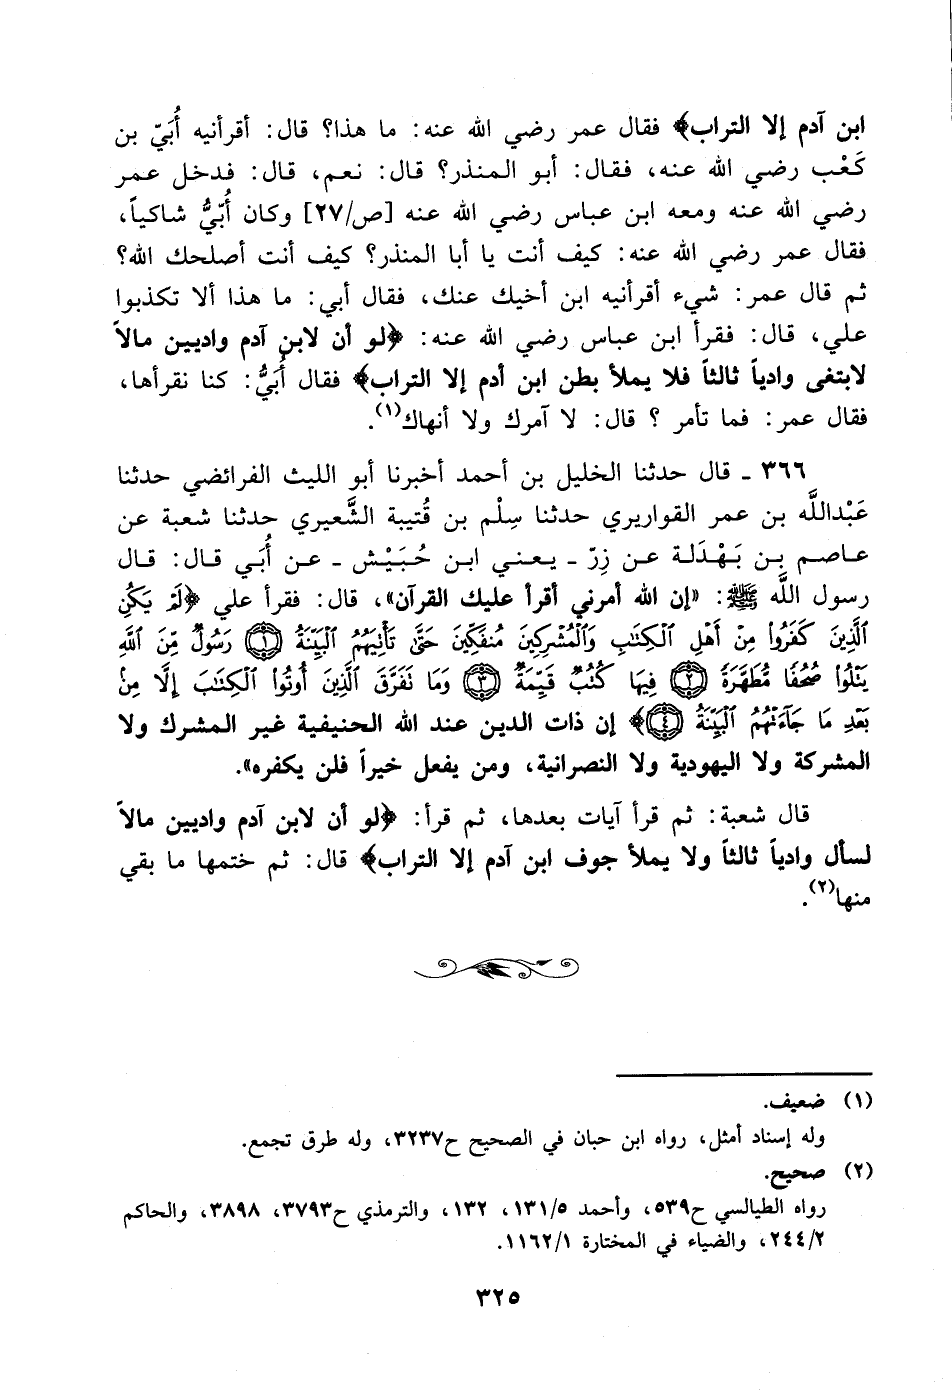 ابن آدم إلا التراب﴾ فقال عمر رضي الله عنه: ما هذا؟ قال: أقرأنيه أُبَيّ بن
كَعْب رضي الله عنه، فقال: أبو المنذر؟ قال: نعم، قال: فدخل عمر
رضي الله عنه ومعه ابن عباس رضي الله عنه [ص/٢٧] وكان أُبَيُّ شاكياً،
فقال عمر رضي الله عنه: كيف أنت يا أبا المنذر؟ كيف أنت أصلحك الله؟
ثم قال عمر: شيء أقرأنيه ابن أخيك عنك، فقال أبي: ما هذا ألا تكذبوا
علي، قال: فقرأ ابن عباس رضي الله عنه: ﴿لو أن لابن آدم واديين مالاً
لابتغى وادياً ثالثاً فلا يملأ بطن ابن أدم إلا التراب﴾ فقال أُبَيُّ: كنا نقرأها،
فقال عمر: فما تأمر ؟ قال: لا آمرك ولا أنهاك(١).
٣٦٦ ـ قال حدثنا الخليل بن أحمد أخبرنا أبو الليث الفرائضي حدثنا
عَبْداللَّه بن عمر القواريري حدثنا سِلْم بن قُتيبة الشَّعيري حدثنا شعبة عن
عاصم بن بَهْدَلة عن زِرّ ـ يعني ابن حُبَيْش ـ عن أُبَي قال: قال
رسول اللَّه ﷺ: «إن الله أمرني أقرأ عليك القرآن»، قال: فقرأ علي ﴿لَمْ يَكُنِ
ٱلَّذِينَ كَفَرُوا۟ مِنْ أَهْلِ ٱلْكِتَٰبِ وَٱلْمُشْرِكِينَ مُنفَكِّينَ حَتَّىٰ تَأْتِيَهُمُ ٱلْبَيِّنَةُ ﴿١﴾ رَسُولٌ مِّنَ ٱللَّهِ
يَتْلُوا۟ صُحُفًا مُّطَهَّرَةً ﴿٢﴾ فِيهَا كُتُبٌ قَيِّمَةٌ ﴿٣﴾ وَمَا تَفَرَّقَ ٱلَّذِينَ أُوتُوا۟ ٱلْكِتَٰبَ إِلَّا مِنۢ
بَعْدِ مَا جَآءَتْهُمُ ٱلْبَيِّنَةُ ﴿٤﴾﴾ إن ذات الدين عند الله الحنيفية غير المشرك ولا
المشركة ولا اليهودية ولا النصرانية، ومن يفعل خيراً فلن يكفره».
قال شعبة: ثم قرأ آيات بعدها، ثم قرأ: ﴿لو أن لابن آدم واديين مالاً
لسأل وادياً ثالثاً ولا يملأ جوف ابن آدم إلا التراب﴾ قال: ثم ختمها ما بقي
منها(٢).
(١) ضعيف.
وله إسناد أمثل، رواه ابن حبان في الصحيح ح٣٢٣٧، وله طرق تجمع.
(٢) صحيح.
رواه الطيالسي ح٥٣٩، وأحمد ١٣١/٥، ١٣٢، والترمذي ح٣٧٩٣، ٣٨٩٨، والحاكم
٢٤٤/٢، والضياء في المختارة ١١٦٢/١.
٣٢٥